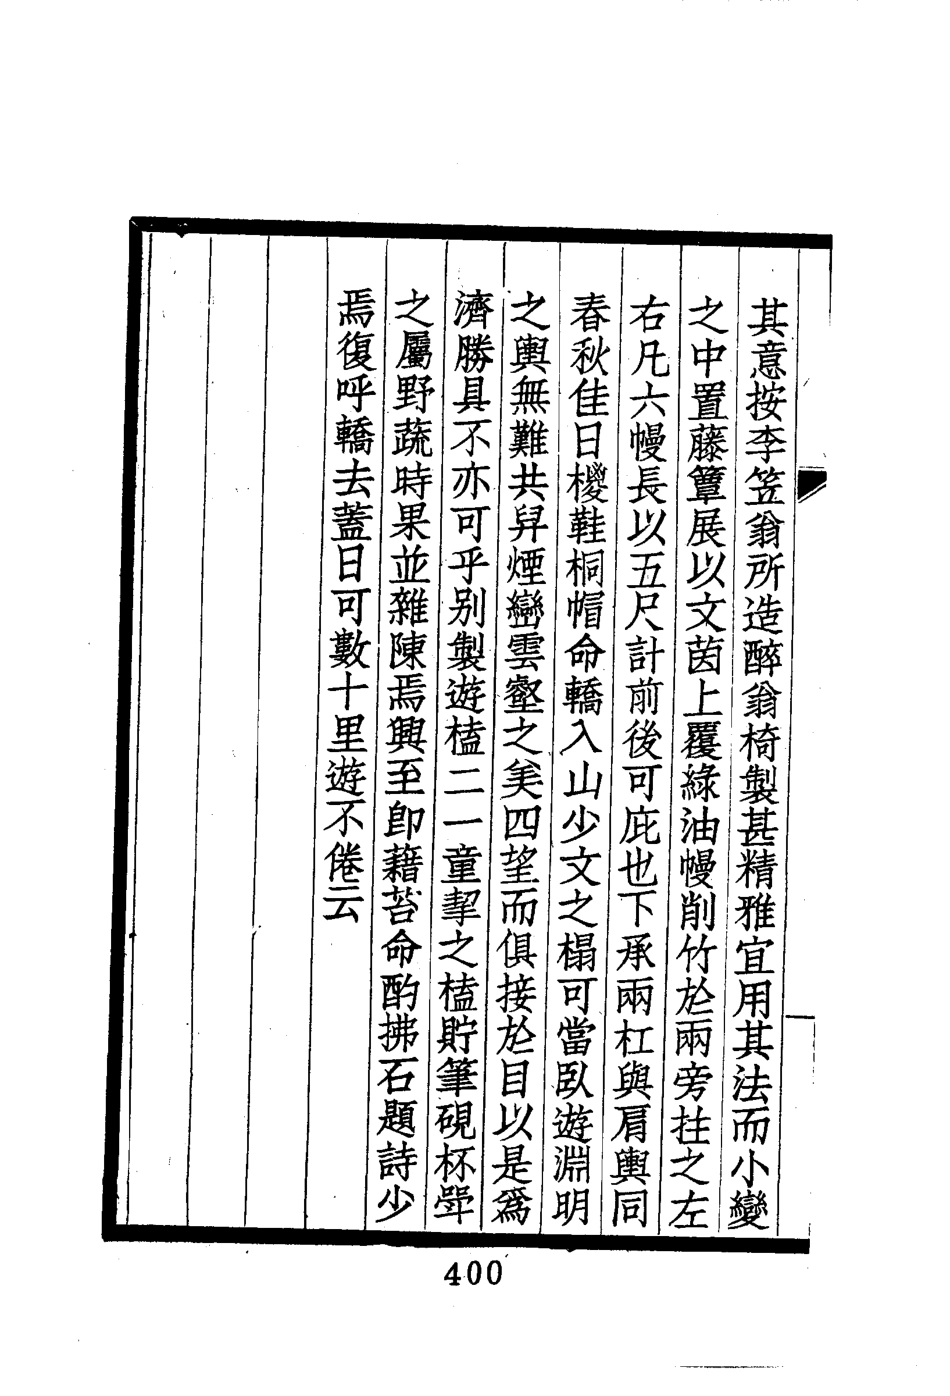 其意按李笠翁所造醉翁椅製甚精雅宜用其法而小變
之中置藤簟展以文茵上覆綠油幔削竹於兩旁拄之左
右凡六幔長以五尺計前後可庇也下承兩杠與肩輿同
春秋佳日椶鞋桐帽命轎入山少文之榻可當臥遊淵明
之輿無難共舁煙巒雲壑之美四望而俱接於目以是為
濟勝具不亦可乎别製遊榼二一童挈之榼貯筆硯杯斝
之屬野蔬時果並雜陳焉興至卽藉苔命酌拂石題詩少
焉復呼轎去蓋日可數十里遊不倦云
400